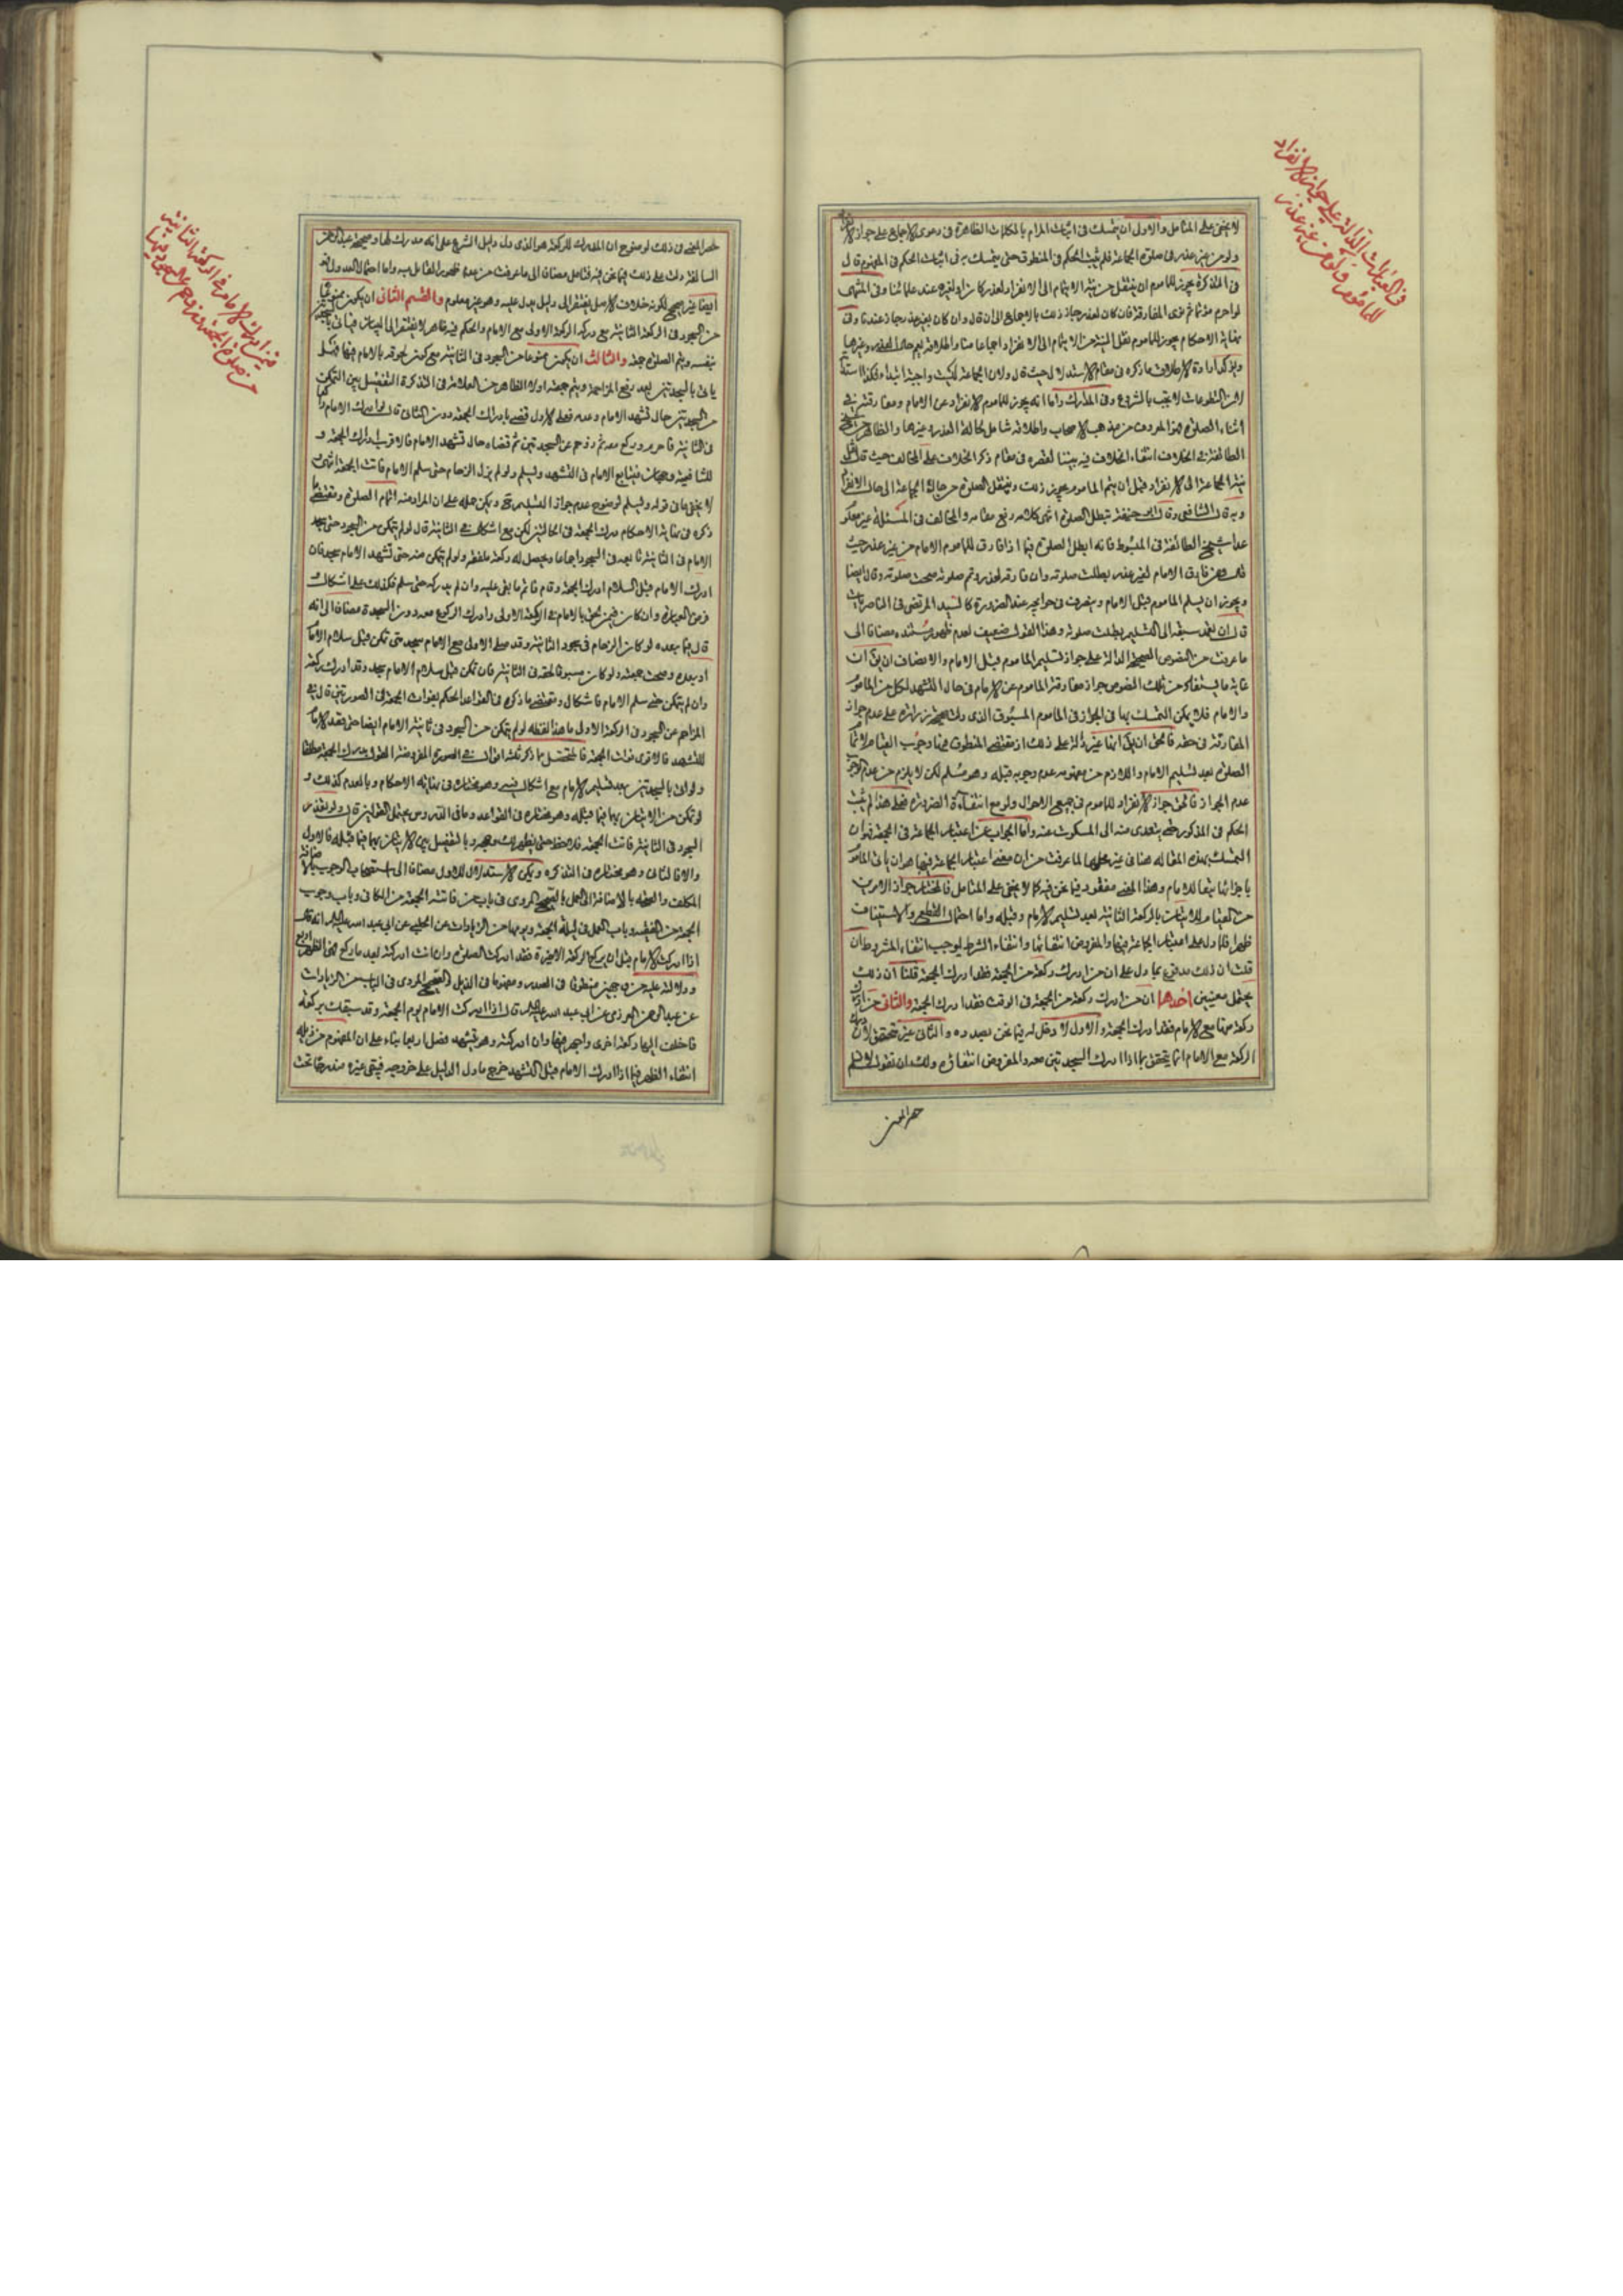 لا يخفى على المتأمل والاولى ان يتمسك في اثبات المرام بالكلمات الظاهرة في دعوى الاجماع على جواز الانفراد
ولو من غير عذر في صلوة الجماعة فلم يثبت الحكم في المنطوق حتى يتمسك به في اثبات الحكم في المفهوم قال
في التذكرة يجوز للماموم ان ينتقل من نية الايتمام الى الانفراد لعذر كان او لغيره عند علمائنا وفي المنتهى
لو احرم مؤتما ثم نوى المفارقة فان كان لعذر جاز ذلك بالاجماع الى ان قال وان كان بغير عذر جاز عندنا وفي
نهاية الاحكام يجوز للماموم نقل النية من الايتمام الى الانفراد اجماعا منا
لان التطوعات لا يجب بالشروع وفي المدارك واما انه يجوز للماموم الانفراد عن الامام ومفارقته في
اثناء الصلوة هو المعروف من مذهب الاصحاب واطلاقه شامل لحالة العذر وغيرها والظاهر من شيخ
الطائفة في الخلاف انتفاء الخلاف فيه بيننا لقصره في مقام ذكر الخلاف على المخالف حيث قال نقل
نية الجماعة الى الانفراد قبل ان يتم الماموم يجوز ذلك وينتقل الصلوة من حال الجماعة الى حال الانفراد
وبه قال الشافعي وقال ابو حنيفة تبطل الصلوة انتهى كلامه رفع مقامه والمخالف في المسئلة غير معلوم
عدا شيخ الطائفة في المبسوط فانه ابطل الصلوة فيما اذا فارق الماموم الامام من غير عذر حيث
قال من فارق الامام لغير عذر بطلت صلوته وان فارقه لعذر وتم صلوته صحت صلوته وقال ايضا
ويجوز ان يسلم الماموم قبل الامام وينصرف في حوائجه عند الضرورة كالسيد المرتضى في الناصريات
قال ان تعمد سبقه الى التسليم بطلت صلوته وهذا القول ضعيف لعدم ظهور مستنده مضافا الى
ما عرفت من النصوص الصحيحة الدالة على جواز تسليم الماموم قبل الامام والانصاف ان يق ان
غاية ما يستفاد من تلك النصوص جواز مفارقة الماموم عن الامام في حال التشهد لكل من الماموم
والامام فلا يمكن التمسك بها في الجواز في الماموم المسبوق الذي دلت صحيحة زرارة على عدم جواز
المفارقة في حقه فالحق ان يق انها غير دالة على ذلك اذ مقتضى المنطوق فيها وجوب القيام لاتمام
الصلوة بعد تسليم الامام واللازم من مفهومه عدم وجوبه قبله وهو مسلم لكن لا يلزم من عدم الوجوب
عدم الجواز فالحق جواز الانفراد للماموم في جميع الاحوال ولو مع انتفاء الضرورة فعلى هذا لم يثبت
الحكم في المذكور حتى يتعدى منه الى المسكوت عنه واما الجواب عن اعتبار الجماعة في الجمعة فهو ان
التمسك بهذه المقالة هنا في غير محلها لما عرفت من ان معنى اعتبار الجماعة فيها هو ان ياتي الماموم
باجزائها تبعا للامام وهذا المعنى مفقود فيما نحن فيه كما لا يخفى على المتامل فالمختار جواز الامرين
من القيام للاتيان بالركعة الثانية بعد تسليم الامام وقبله واما احتمال القطع والاستيناف
ظهرا فلما دل على اعتبار الجماعة فيها والمفروض انتفائها وانتفاء الشرط يوجب انتفاء المشروط ان
قلت ان ذلك مدفوع بما دل على ان من ادرك ركعة من الجمعة فقد ادرك الجمعة قلنا ان ذلك
يحتمل معنيين احدهما ان من ادرك ركعة من الجمعة في الوقت فقد ادرك الجمعة والثاني من ادرك
ركعة منها مع الامام فقد ادرك الجمعة والاول لا دخل له فيما نحن بصدده والثاني غير متحقق لان
الركعة مع الامام انما يتحقق بما اذا ادرك السجدتين معه والمفروض انتفاؤه ولك ان تقول
في العبارات الدالة على جواز الانفراد
للماموم ولو من غير عذر
السالفة دلت على ذلك فيما نحن فيه فتامل مضافا الى ما عرفت من عدم ظهور القائل به واما احتمال العدول فهو
ايضا غير صحيح لكونه خلاف الاصل يفتقر الى دليل يدل عليه وهو غير معلوم والقسم الثاني ان يكون ممنوعا
من السجود في الركعة الثانية مع دركه الركعة الاولى مع الامام والحكم فيه ظاهر لا يفتقر الى البيان فياتي بالسجدتين
بنفسه ويتم الصلوة جمعة والثالث ان يكون ممنوعا من السجود في الثانية مع كون لحوقه بالامام فيها فهل
ياتي بالسجدتين بعد رفع المزاحمة ويتم جمعة اولا الظاهر من العلامة في التذكرة التفصيل بين التمكن
من السجدتين حال تشهد الامام وعدمه فعلى الاول قضى بادراك الجمعة دون الثاني قال لو ادرك الامام راكعا
في الثانية فاحرم وركع معه ثم زوحم عن السجدتين ثم قضاه حال تشهد الامام فالاقرب ادراك الجمعة و
للشافعية وجهان فيتابع الامام في التشهد ويسلم ولو لم يزل الزحام حتى سلم الامام فاتت الجمعة انتهى
لا يخفى ما في قوله ويسلم لوضوح عدم جواز التسليم ح ويمكن حمله على ان المراد منه اتمام الصلوة ومقتضى ما
ذكره في نهاية الاحكام درك الجمعة في الحالتين لكن مع اشكال في الثانية قال لو لم يتمكن من السجود حتى سجد
الامام في الثانية تابعه في السجود اجماعا ويحصل له ركعة ملفقة ولو لم يتمكن منه حتى تشهد الامام سجد فان
ادرك الامام قبل السلام ادرك الجمعة وقام فاتم ما بقى عليه وان لم يدركه حتى سلم فكذلك على اشكال
قال فيما بعده لو كان الزحام في سجود الثانية وقد صلى الاولى مع الامام سجد متى تمكن قبل سلام الامام
او بعده وصحت جمعته ولو كان مسبوقا لحقه في الثانية فان تمكن قبل سلام الامام سجد وقد ادرك ركعة
وان لم يتمكن حتى سلم الامام فاشكال ومقتضى ما ذكره في القواعد الحكم بفوات الجمعة في الصورتين قال في
المزاحم عن السجود في الركعة الاولى ما هذا لفظه لو لم يتمكن من السجود في ثانية الامام ايضا حتى قعد الامام
للتشهد فالاقوى فوات الجمعة فالمتحصل مما ذكر ثلثة اقوال في الصورة المفروضة القول بدرك الجمعة مطلقا
ولو اتى بالسجدتين بعد تسليم الامام مع اشكال فيه وهو مختاره في نهاية الاحكام وبالعدم كذلك و
لو تمكن من الاتيان بهما فيما قبله وهو مختاره في القواعد وما في الدروس يحتمل القولين قال ولو تعذر
السجود في الثانية فاتت الجمعة
والا فالثاني وهو مختاره في التذكرة ويمكن الاستدلال للاول مضافا الى استصحاب الوجوب
الجمعة من الفقيه وباب العمل في ليلة الجمعة ويومها من الزيادات عن الحلبي عن ابي عبد الله عليه السلام انه قال
اذا ادركت الامام قبل ان يركع الركعة الاخيرة فقد ادركت الصلوة وان انت ادركته بعد ما ركع فهي الظهر اربع
عن عبد الرحمن العرزمي عن ابي عبد الله عليه السلام قال اذا ادركت الامام يوم الجمعة وقد سبقك بركعة
فاضف اليها ركعة اخرى واجهر فيها وان ادركته وهو يتشهد فصل اربعا بناء على ان المفهوم من ذيله
انتفاء الظهر فيما اذا ادرك الامام قبل التشهد خرج ما دل الدليل على خروجه فيبقى غيره مندرجا تحت
فيمن ادرك الامام في الركعة الثانية